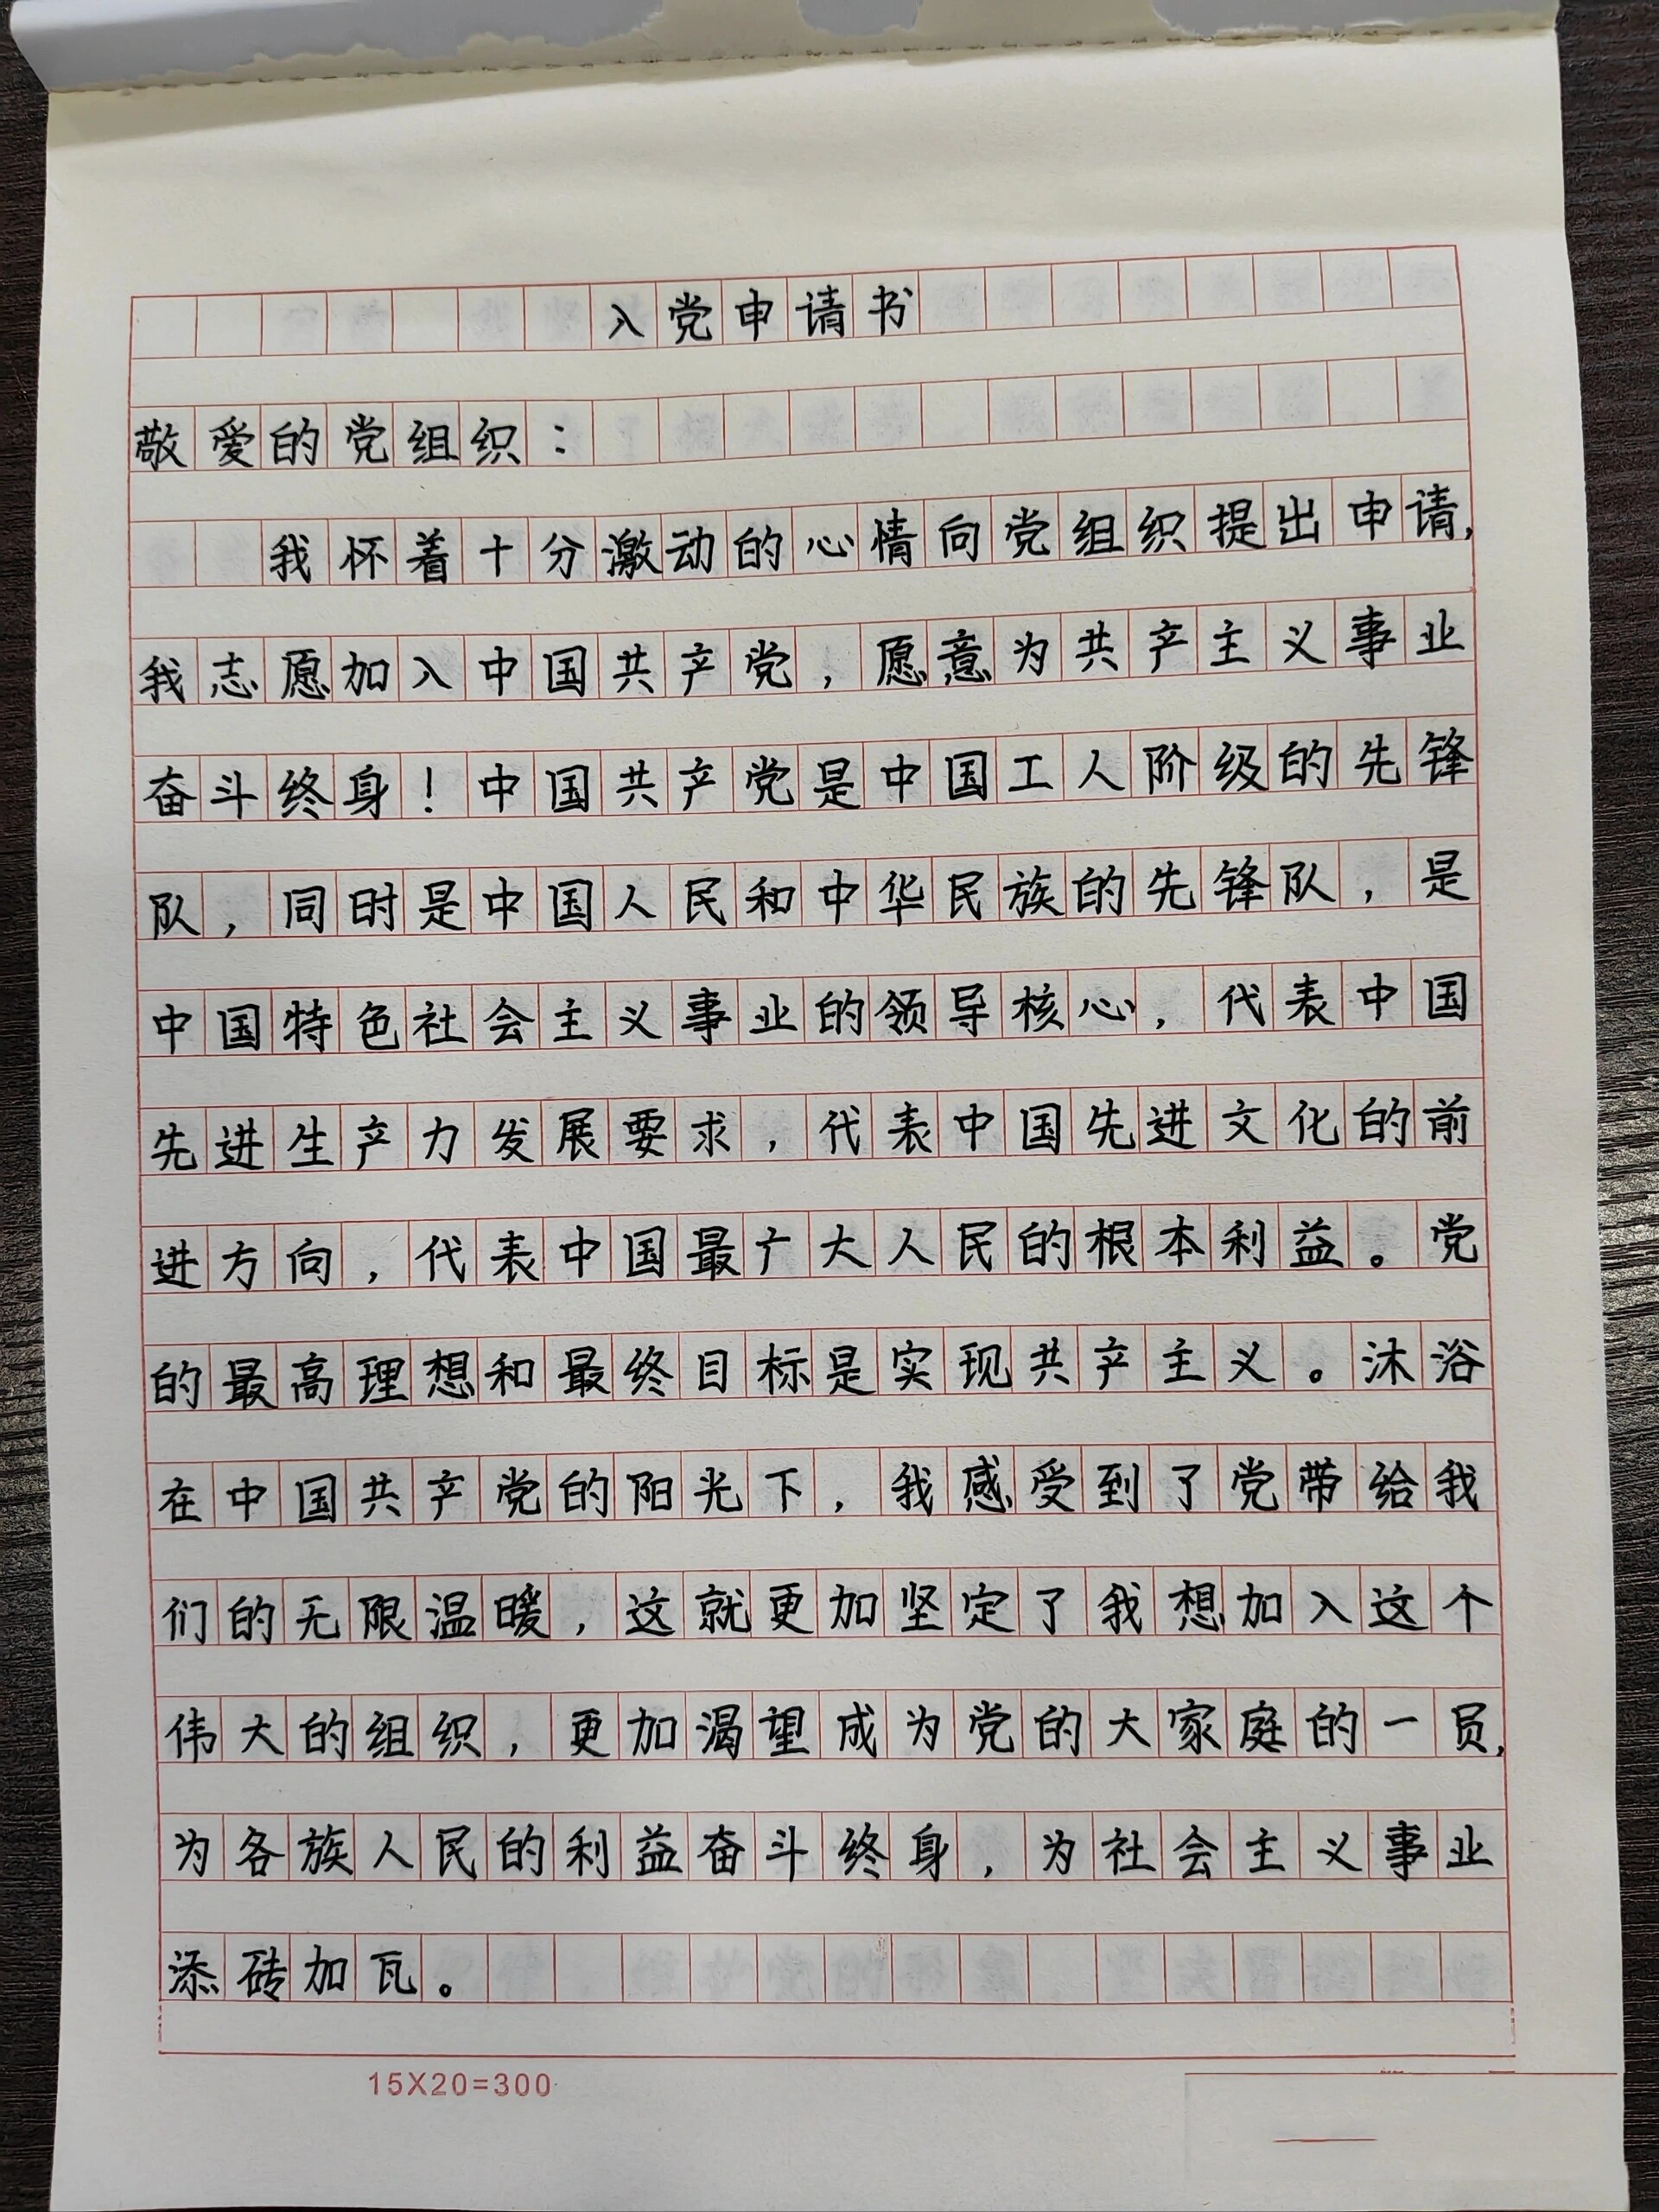 入党申请书
敬爱的党组织：
我怀着十分激动的心情向党组织提出申请，
我志愿加入中国共产党，愿意为共产主义事业
奋斗终身！中国共产党是中国工人阶级的先锋
队，同时是中国人民和中华民族的先锋队，是
中国特色社会主义事业的领导核心，代表中国
先进生产力发展要求，代表中国先进文化的前
进方向，代表中国最广大人民的根本利益。党
的最高理想和最终目标是实现共产主义。沐浴
在中国共产党的阳光下，我感受到了党带给我
们的无限温暖，这就更加坚定了我想加入这个
伟大的组织，更加渴望成为党的大家庭的一员，
为各族人民的利益奋斗终身，为社会主义事业
添砖加瓦。
15X20=300